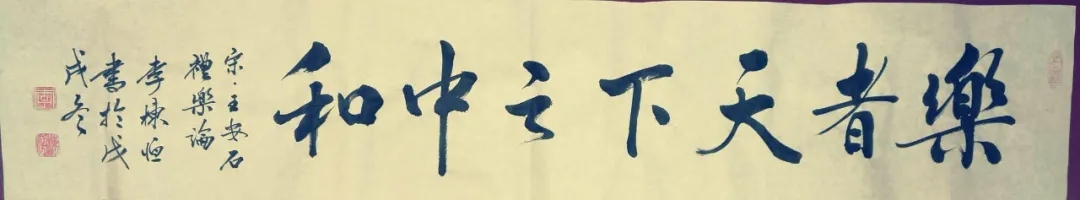 樂者天下之中和
宋·王安石
禮樂論
李棟恒
書於戊
戌冬